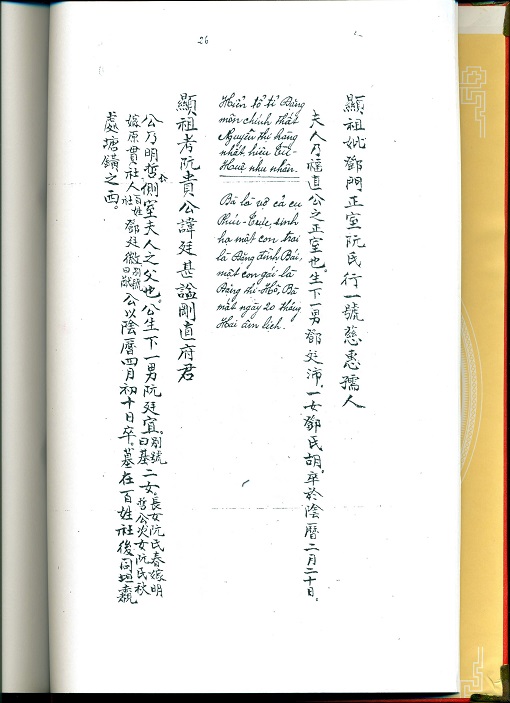 26
顯祖妣鄧門正室阮氏行一號慈惠孺人
夫人乃福直公之正室也。生下一男鄧廷沛，一女鄧氏胡。卒於陰曆二月二十日。
Hiển tổ tỉ Đặng
môn chính thất
Nguyễn thị hàng
nhất, hiệu Từ-
Huệ nhụ nhân.
Bà là vợ cả cụ
Phúc-Trực, sinh
hạ một con trai
là Đặng đình Bái,
một con gái là
Đặng thị-Hồ, Bà
mất ngày 20 tháng
Hai âm lịch.
顯祖考阮貴公諱廷甚謚剛直府君
公乃明哲公側室夫人之父也。公生下一男阮廷宜，別號曰基，二女。長女阮氏春嫁明
哲公，次女阮氏秋
嫁原貫社人百姓社鄧廷 別號曰 公以陰曆四月初十日卒。墓在百姓社後同
處塘鐄之西。